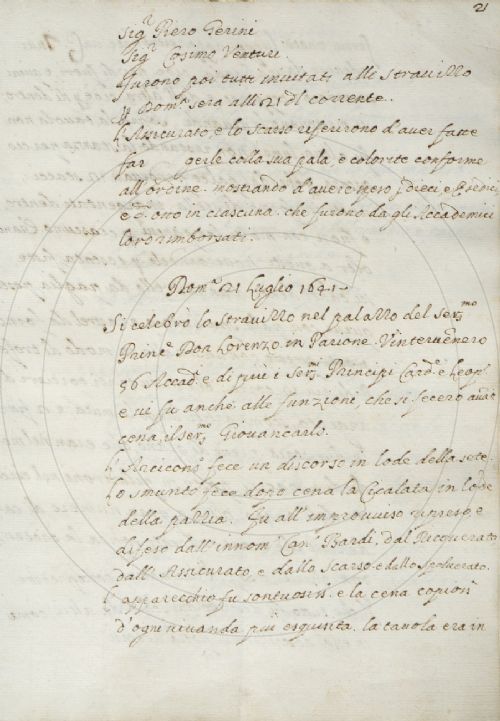 21
Sig.r Piero Gerini
Sig.r Cosimo Venturi
furono poi tutti invitati allo stravizzo
p Dom.ca sera alli 21 d'l corrente.
L'Assicurato, e lo scarso riferirono d'aver fatte
far gerle colla sua pala, e colorite conforme
all'ordine. mostrando d'avere speso
e in ciascuna. che furono da gli Accademici
loro rimborsati.
Dom.ca 21 Luglio 1641
Si celebrò lo stravizzo nel palazzo del Ser.mo
Princ.e Don Lorenzo in Parione. V'intervennero
56 Accad.i e di più i ser.mi Principi Card.e e Leop.o
e vi fu anche alle funzioni, che si fecero avanti
cena, il ser.mo Giovancarlo.
L'Arcicons.o fece un discorso in lode della sete.
Lo smunto fece dopo cena la Cicalata in lode
della pazzia. Fu all'improvviso ripreso, e
difeso dall'innom.o Can.co Bardi, dal Ricoverato
dall'Assicurato, e dallo scarso e dallo spolverato.
L'apparecchio fu sontuosis.o e la cena copios.a
d'ogni vivanda più esquisita. la tavola era in